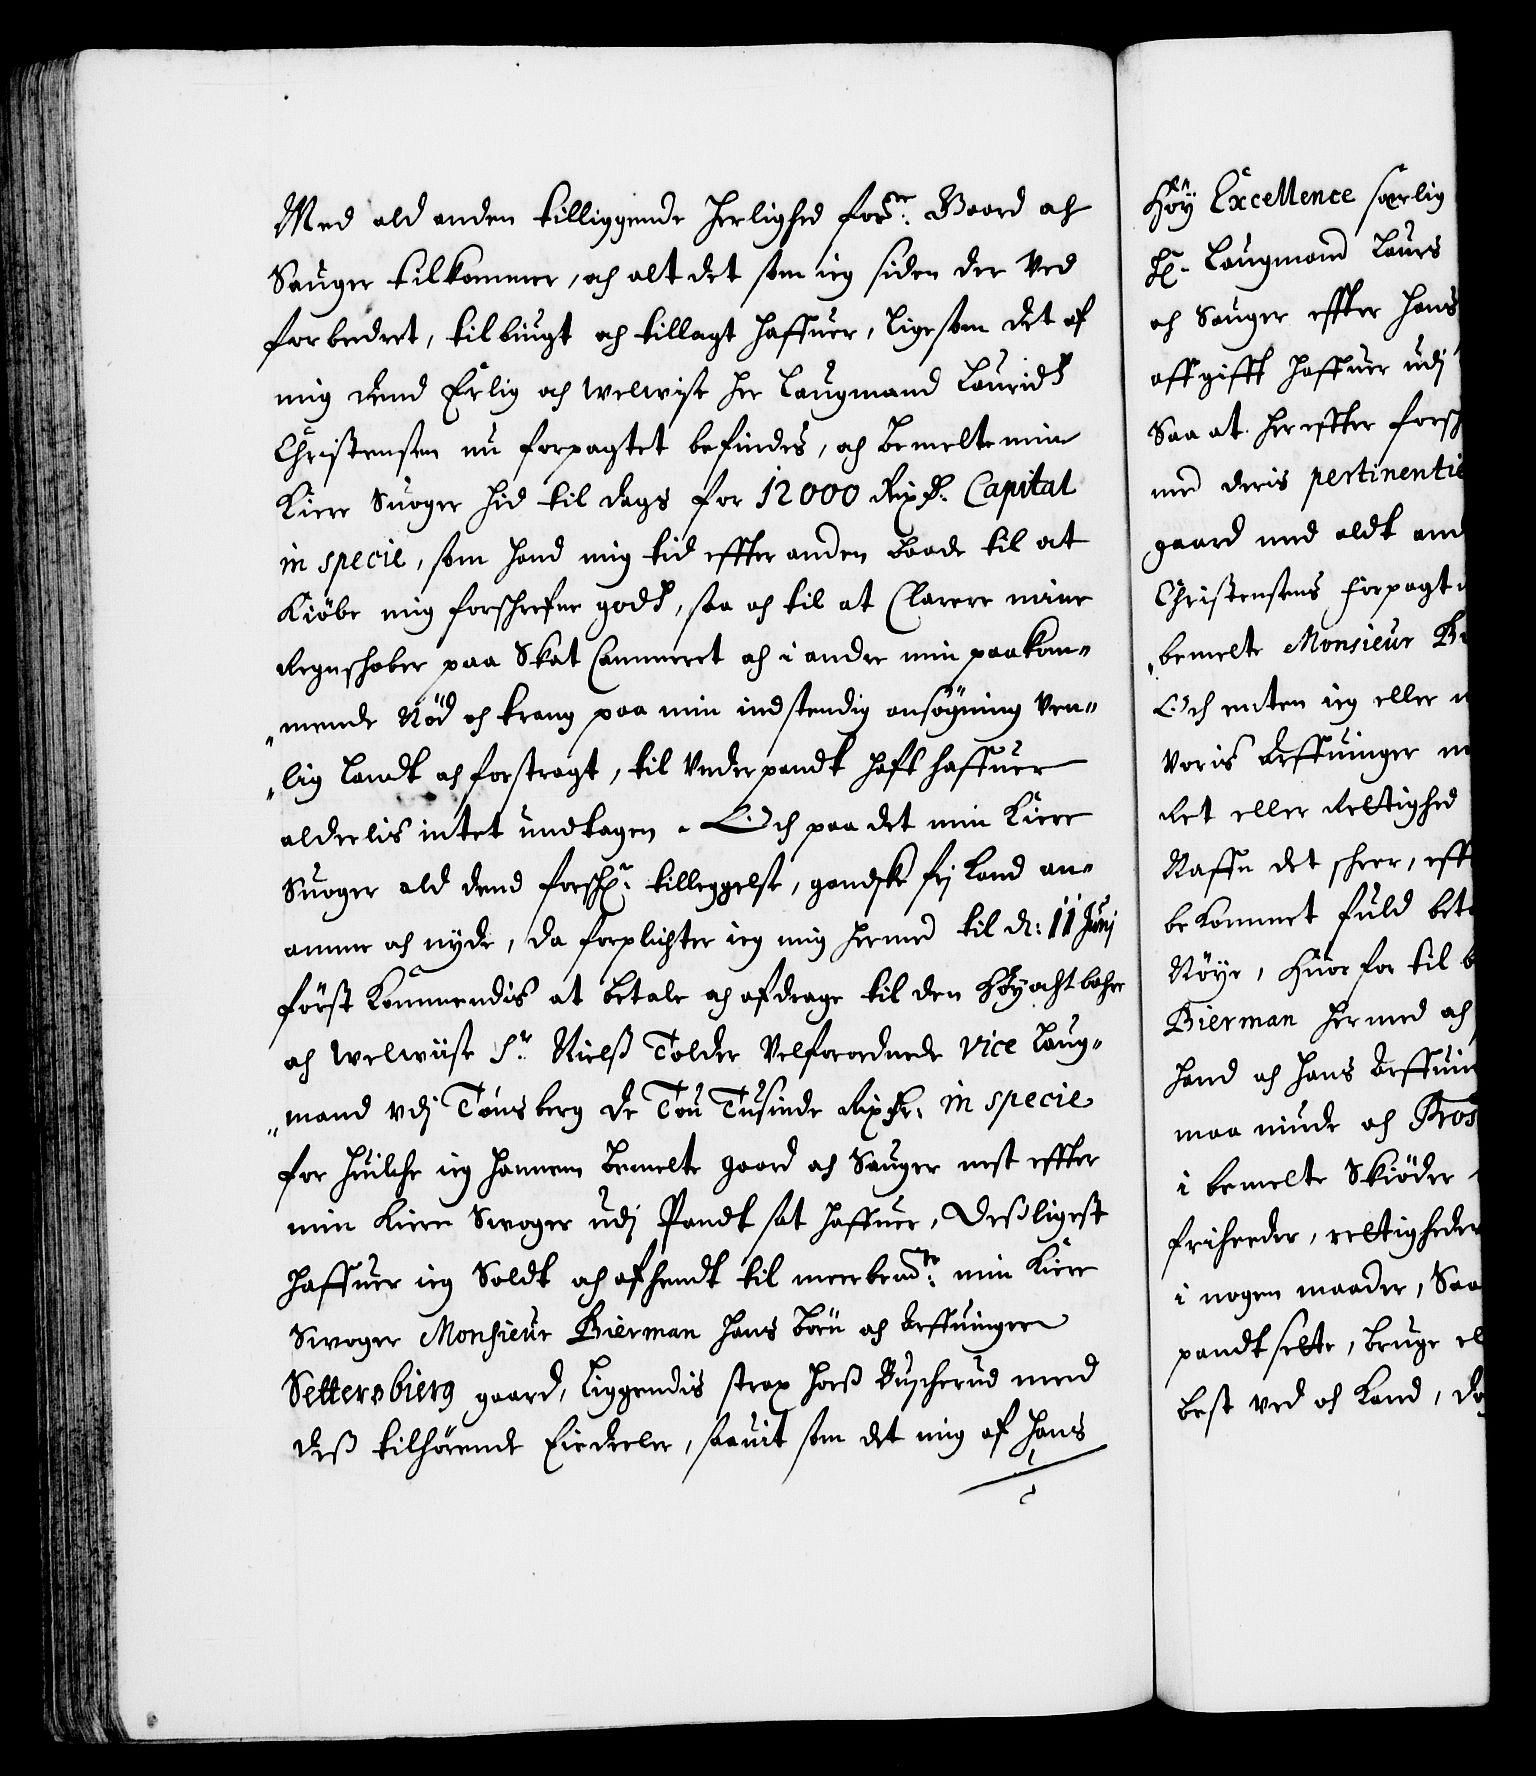 Med ald anden tilliggende Herlighed forne: Gaard och
Sauger tilkommer, och alt det som ieg siden der Ved
forbedret, tilbiugt och tillagt haffuer, ligesom det af
mig dend Erlig och Welwise Her Laugmand Lauridtz
Christensen nu forpagtet befindes, och bemelte min
Kiere Suoger hid til dags for 12000 Rixdr. Capital
in specie, som hand mig tid effter anden baade til at
Kiöbe mig forschrefne godtz, saa och til at Clarere mine
Regnschaber paa Skat Cammeret och i andre min paakom„
„mende Nöd och trang paa min indstendig ansögning Ven„
„lig laant och forstragt, til Underpandt hafft haffuer
alderlis intet undtagen. Och paa det min Kiere
Suoger ald dend forschr: tilleggelse, gandske frj Kand an„
amme och nyde, da forplichter ieg mig hermed til d: 11 Junj
först Kommendis at betale och afdrage til den Höyachtbahre
och Welwiise Sr. Nielß Tolder Velforordnede Vice Laug„
„mand udj Tönsberg de Tou Tusinde Rixdr. in specie
for huilche ieg hannem bemelte gaard och Sauger nest effter
min Kiere Swoger udj Pandt sat haffuer, Deßligest
haffuer ieg Soldt och afhendt til meerbemte: min Kiere
Swoger Monsieur Bierman hans börn och Arffuinger
Settersbierg gaard, liggendis strax hoß Buscherud med
deß tilhörende Eiedeeler, saauit som det mig af Hans
Höy Excellence salig
Hr. Laugmand Laurs
och Sauger effter hans
affgifft haffuer udj
Saa at her effter forsch
med deris pertinentie
gaard med aldt and
Christensens forpagt
„bemelte Monsieur B
Och enten ieg eller
Voris Arffuinger
Ret eller Rettighed
Naffn det scheer, eff
bekommet fuld bet
Nöye, Huor for til b
Bierman hermed och
hand och hans Arffuin
maa niude och
i bemelte Skiöder
friheeder, rettigheder
i nogen maader, Saa
pandtsette, bruge el
best ved och Kand, da